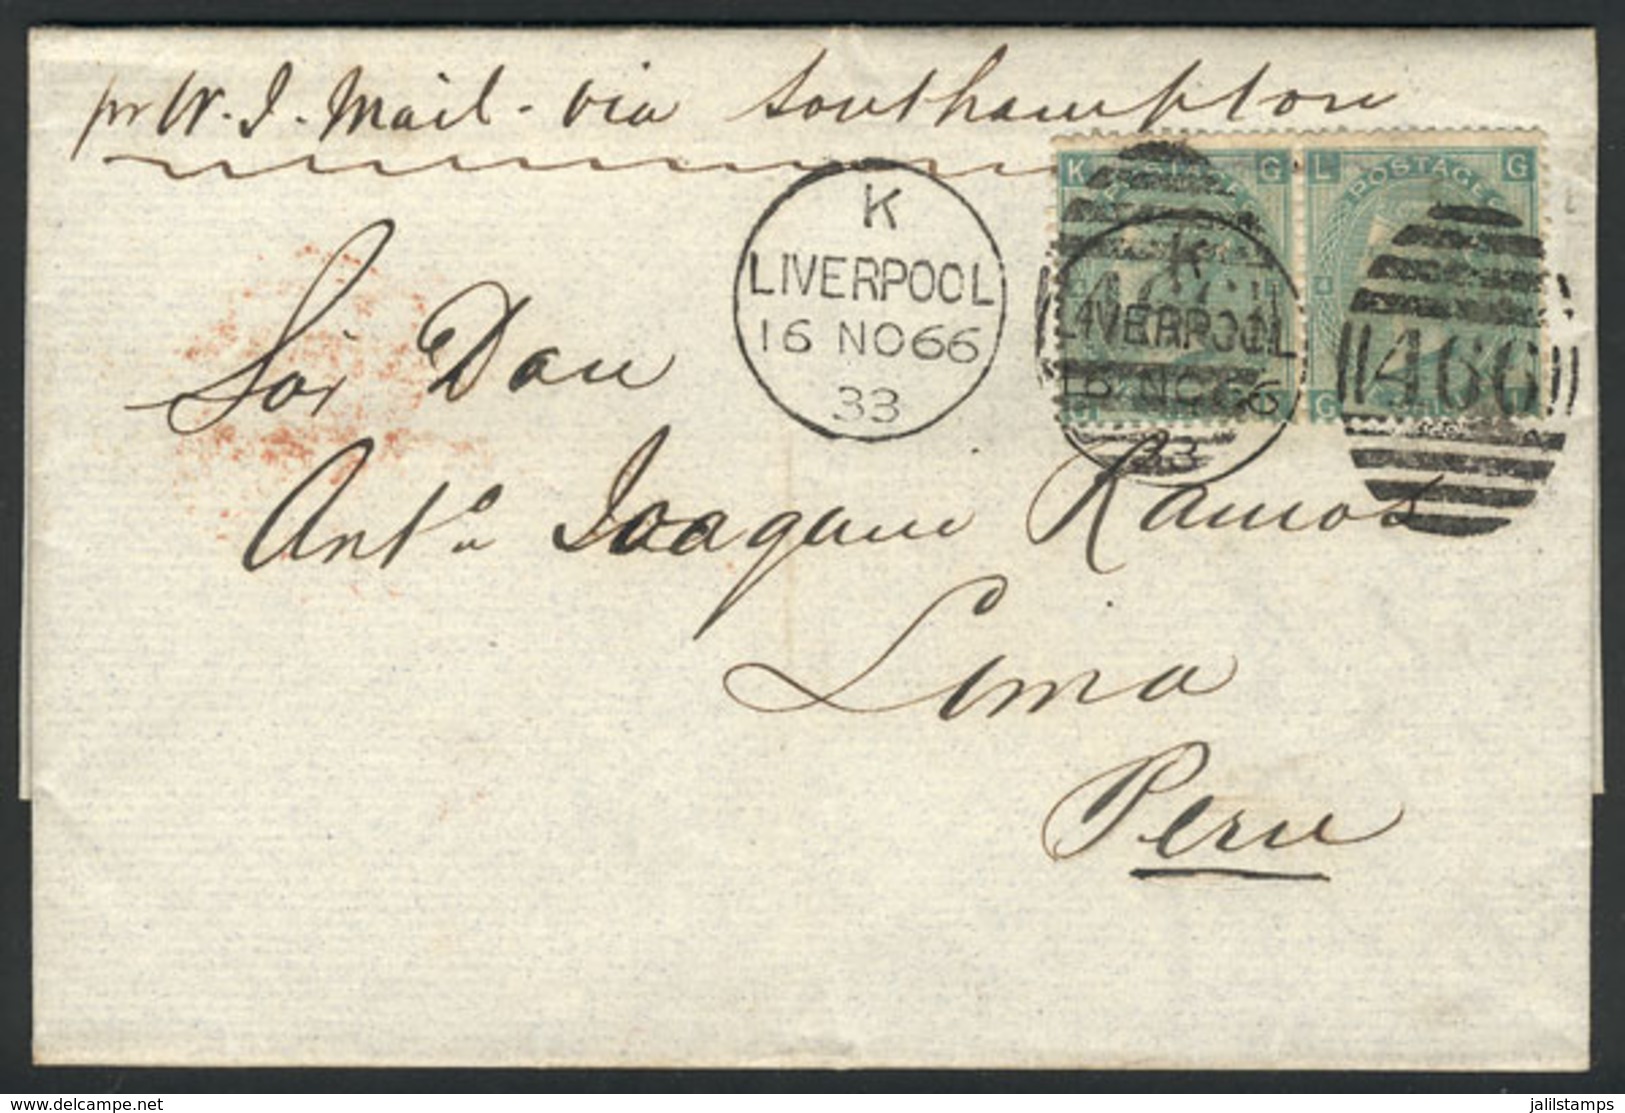 pr W. I. Mail - via Southampton
K
LIVERPOOL
16 NO 66
33
K G
L G
POSTAGE
K
LIVERPOOL
16 NO 66
33
466
Sor Don
Anto Joaquin Ramos
Lima
Peru
www.delcampe.net
jalilstamps